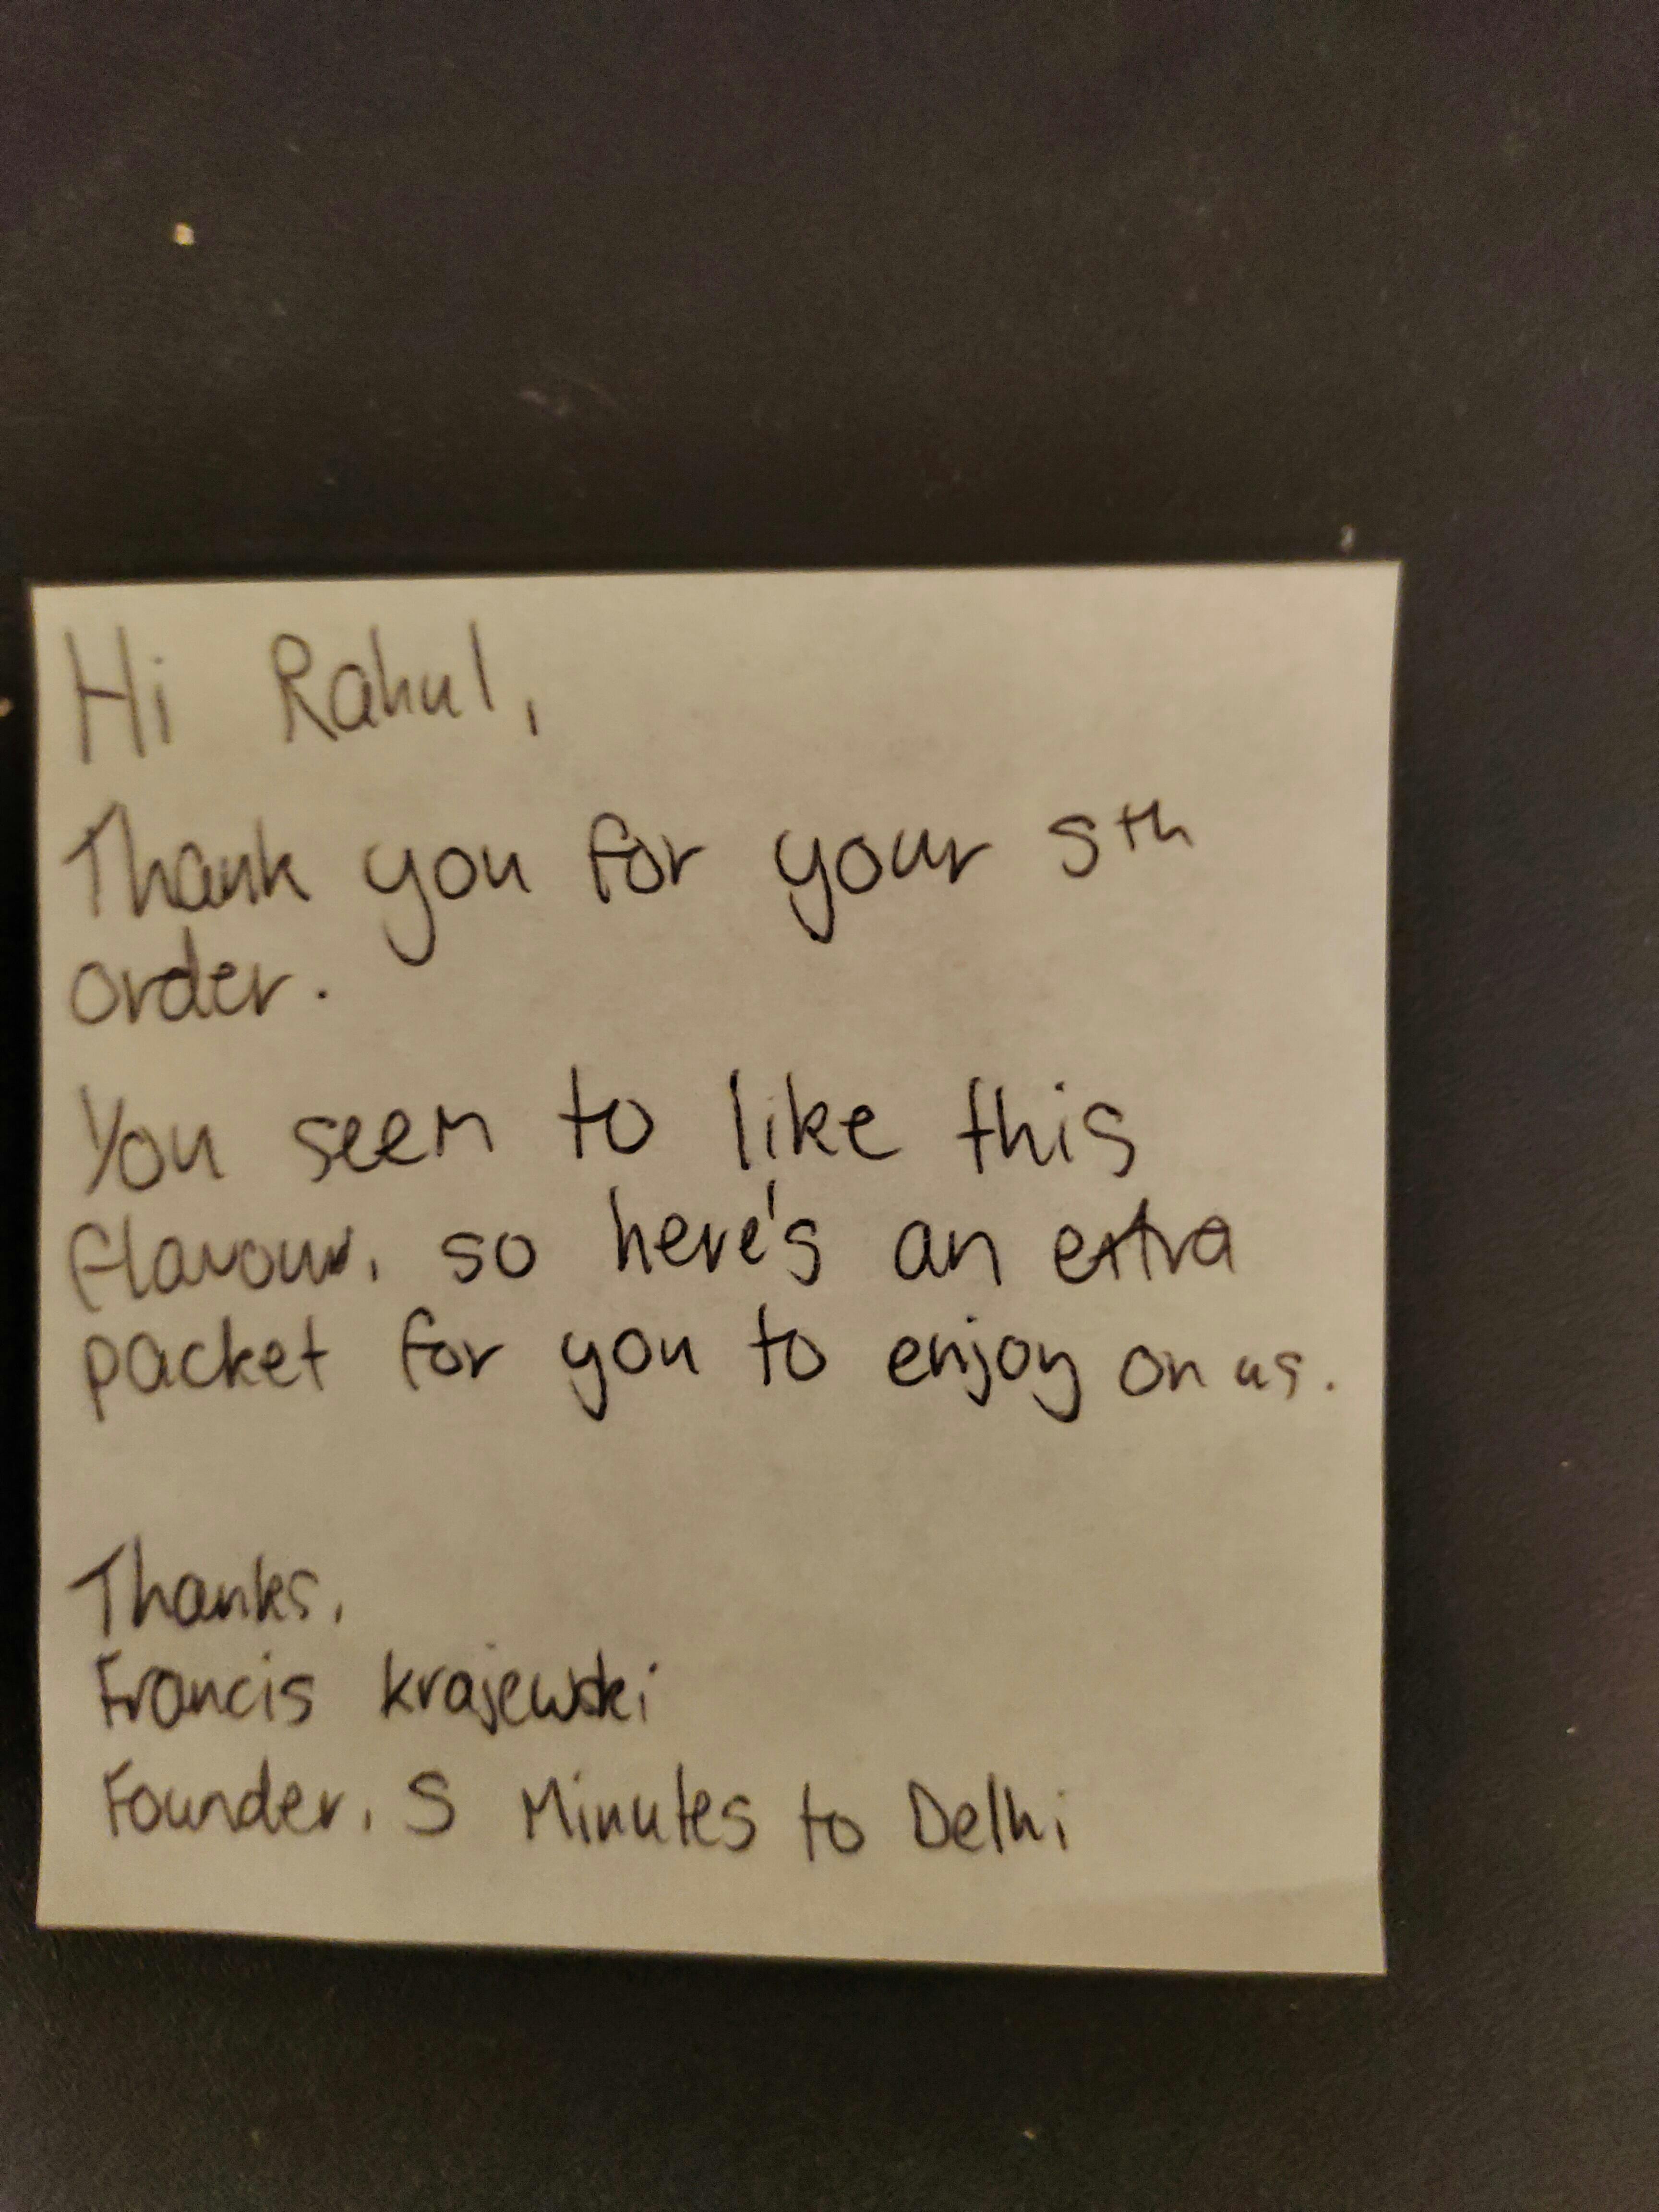 Hi Rahul,
Thank you for your 5th
order.
You seem to like this
flavour, so here's an extra
packet for you to enjoy on us.
Thanks,
Francis Krajewski
Founder, 5 Minutes to Delhi